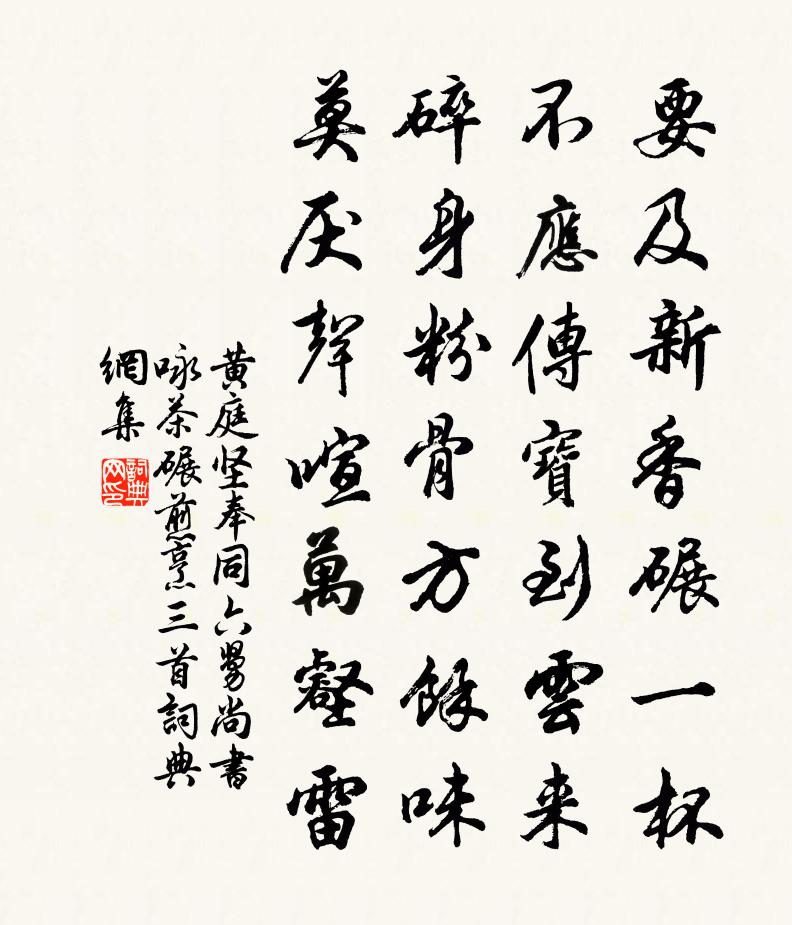 要及新香碾一杯
不應傳寶到雲来
碎身粉骨方餘味
莫厌聲喧萬壑雷
黄庭坚奉同六舅尚書
咏茶碾煎烹三首詞典
網集
詞典
网印